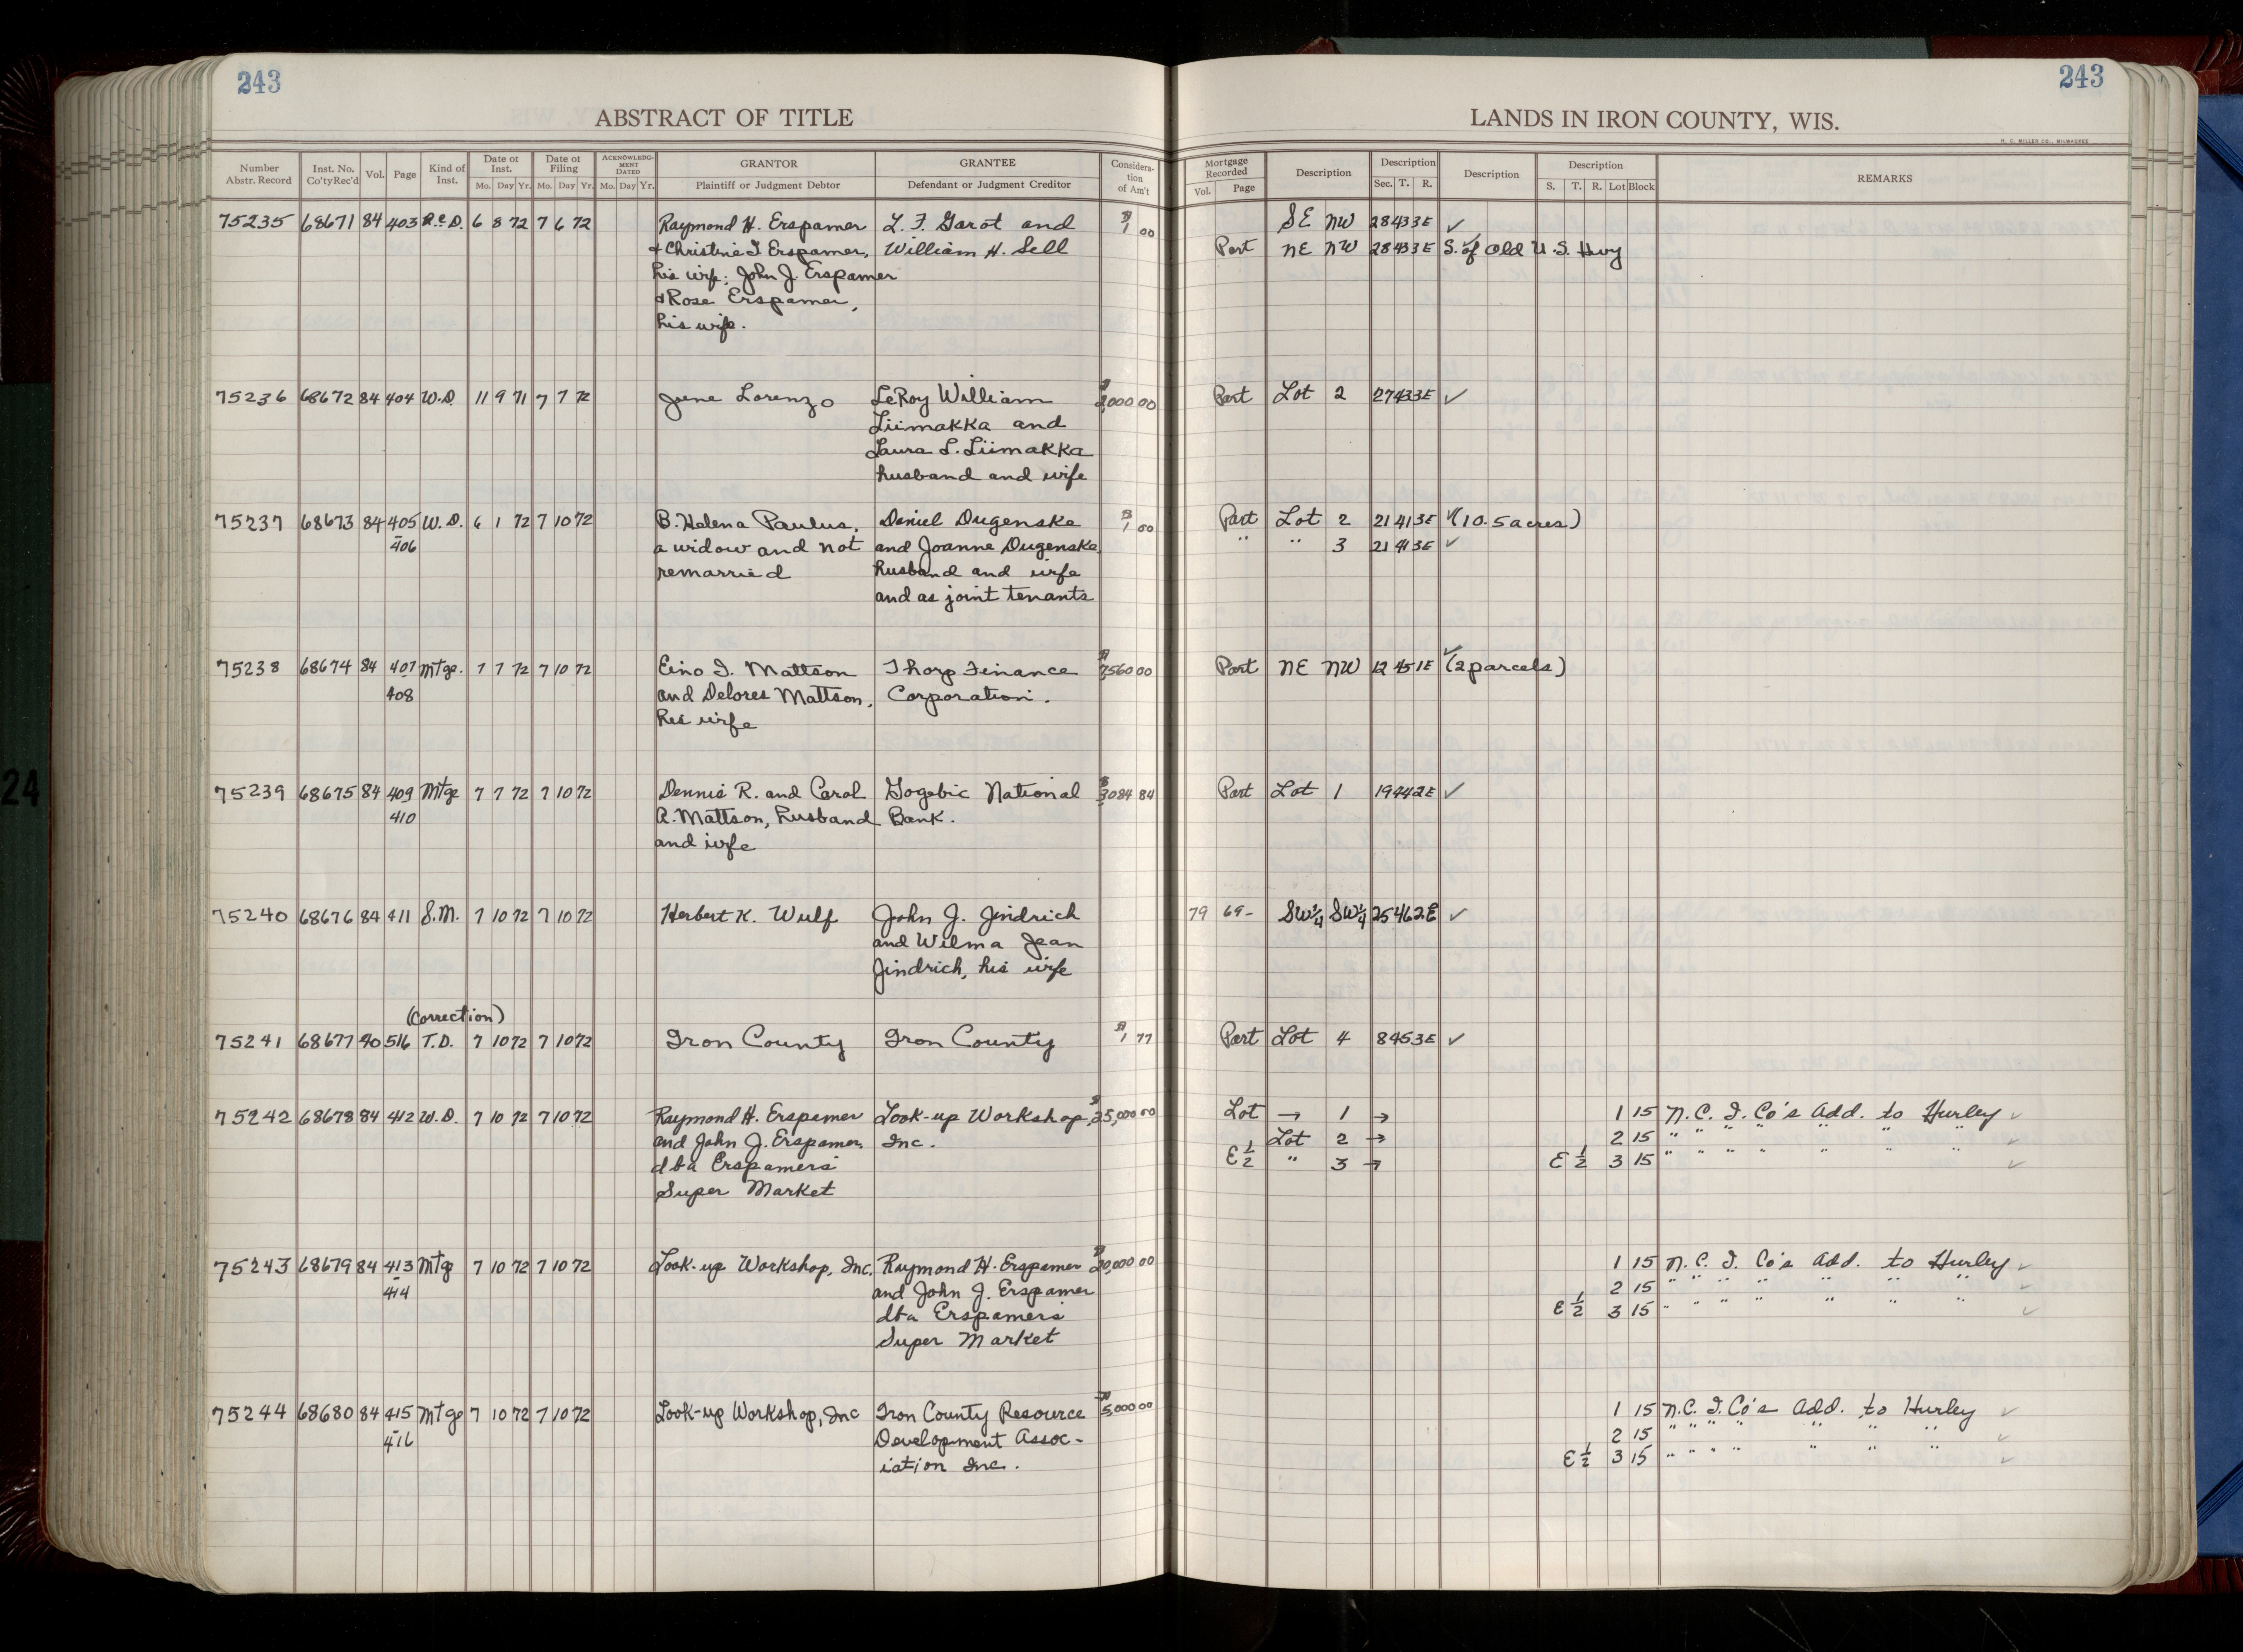 243
243
ABSTRACT OF TITLE
LANDS IN IRON COUNTY, WIS.
H. C. MILLER CO., MILWAUKEE
Number Abstr. Record Inst. No. Co'tyRec'd Vol. Page Kind of Inst. Date of Inst. Mo. Day Yr. Date of Filing Mo. Day Yr. ACKNOWLEDGMENT DATED Mo. Day Yr. GRANTOR Plaintiff or Judgment Debtor GRANTEE Defendant or Judgment Creditor Consideration of Am't Mortgage Recorded Vol. Page Description Description Sec. T. R. Description Description S. T. R. Lot Block REMARKS
75235 68671 84 403 Q.C.D. 6 8 72 7 6 72 Raymond H. Erspamer L. F. Garot and $1 00 SE NW 28 43 3E ✓
& Christine I Erspamer, William H. Sell Part NE NW 28 43 3E S. of Old U.S. Hwy
his wife; John J. Erspamer
& Rose Erspamer,
his wife.
75236 68672 84 404 W.D. 11 9 71 7 7 72 June Lorenzo LeRoy William $2,000 00 Part Lot 2 27 43 3E ✓
Liimakka and
Laura L. Liimakka
husband and wife
75237 68673 84 405 W.D. 6 1 72 7 10 72 B. Helena Paulus, Daniel Dugenske $1 00 Part Lot 2 21 41 3E ✓(10.5 acres)
-406 a widow and not and Joanne Dugenske, " " 3 21 41 3E ✓
remarried husband and wife
and as joint tenants
75238 68674 84 407 Mtge. 7 7 72 7 10 72 Eino I. Mattson Thorp Finance $7,560 00 Part NE NW 12 45 1E ✓(2 parcels)
-408 and Delores Mattson, Corporation.
his wife
75239 68675 84 409 Mtge 7 7 72 7 10 72 Dennis R. and Carol Gogebic National $3,084 84 Part Lot 1 19 44 2E ✓
410 A. Mattson, husband Bank.
and wife
75240 68676 84 411 S.M. 7 10 72 7 10 72 Herbert K. Wulf John J. Jindrich 79 69- SW¼ SW¼ 25 46 2E ✓
and Wilma Jean
Jindrich, his wife
(correction)
75241 68677 40 516 T.D. 7 10 72 7 10 72 Iron County Iron County $1 77 Part Lot 4 8 45 3E ✓
75242 68678 84 412 W.D. 7 10 72 7 10 72 Raymond H. Erspamer Look-up Workshop, $25,000 00 Lot → 1 → 1 15 N.C.I. Co's Add. to Hurley ✓
and John J. Erspamer, Inc. Lot 2 → 2 15 " " " " " " " ✓
dba Erspamers E½ " 3 → E ½ 3 15 " " " " " " " ✓
Super Market
75243 68679 84 413 Mtg 7 10 72 7 10 72 Look-up Workshop, Inc. Raymond H. Erspamer $20,000 00 1 15 N.C.I. Co's Add. to Hurley ✓
-414 and John J. Erspamer 2 15 " " " " " " " ✓
dba Erspamers E ½ 3 15 " " " " " " " ✓
Super Market
75244 68680 84 415 Mtge 7 10 72 7 10 72 Look-up Workshop, Inc Iron County Resource $5,000 00 1 15 N.C.I. Co's Add. to Hurley ✓
-416 Development Assoc- 2 15 " " " " " " " ✓
iation Inc. E ½ 3 15 " " " " " " " ✓
24